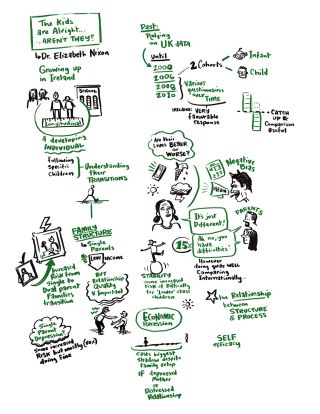 The Kids
are Alright...
...AREN'T THEY?
by Dr. Elizabeth Nixon
Growing up
in Ireland
SCHOOL
Longitudinal
A developing
INDIVIDUAL
Following
Specific
Children
Understanding
their
TRANSITIONS
FAMILY
STRUCTURE
Single
Parents
LOW INCOME
BUT
Relationship
Quality
V Important
Increased
Risk from
Single to
Dual parent
Families
transition
Single
Parent
Depression
Some increased
Risk but mostly
doing fine
Past:
Relying
on UK DATA
Until
2006
2008
2010
2 Cohorts
Infant
Child
Various
questionnaires
over
TIME
IRELAND: VERY
favourable
response
CATCH
UP &
Comparison
Useful
Are their
Lives BETTER
or
WORSE?
Negative
Bias
MEDIA
PARENTS
It's just
Different!
Ah no, you
have
difficulties
15%
However
doing quite well
Comparing
Internationally...
STABILITY
some increased
risk of difficulty
for 'Lower' class
children
The Relationship
between
STRUCTURE
& PROCESS
ECONOMIC
Recession
Casts biggest
shadow despite
family setup
IF depressed
Mother
or
Distressed
Relationship
SELF
efficacy